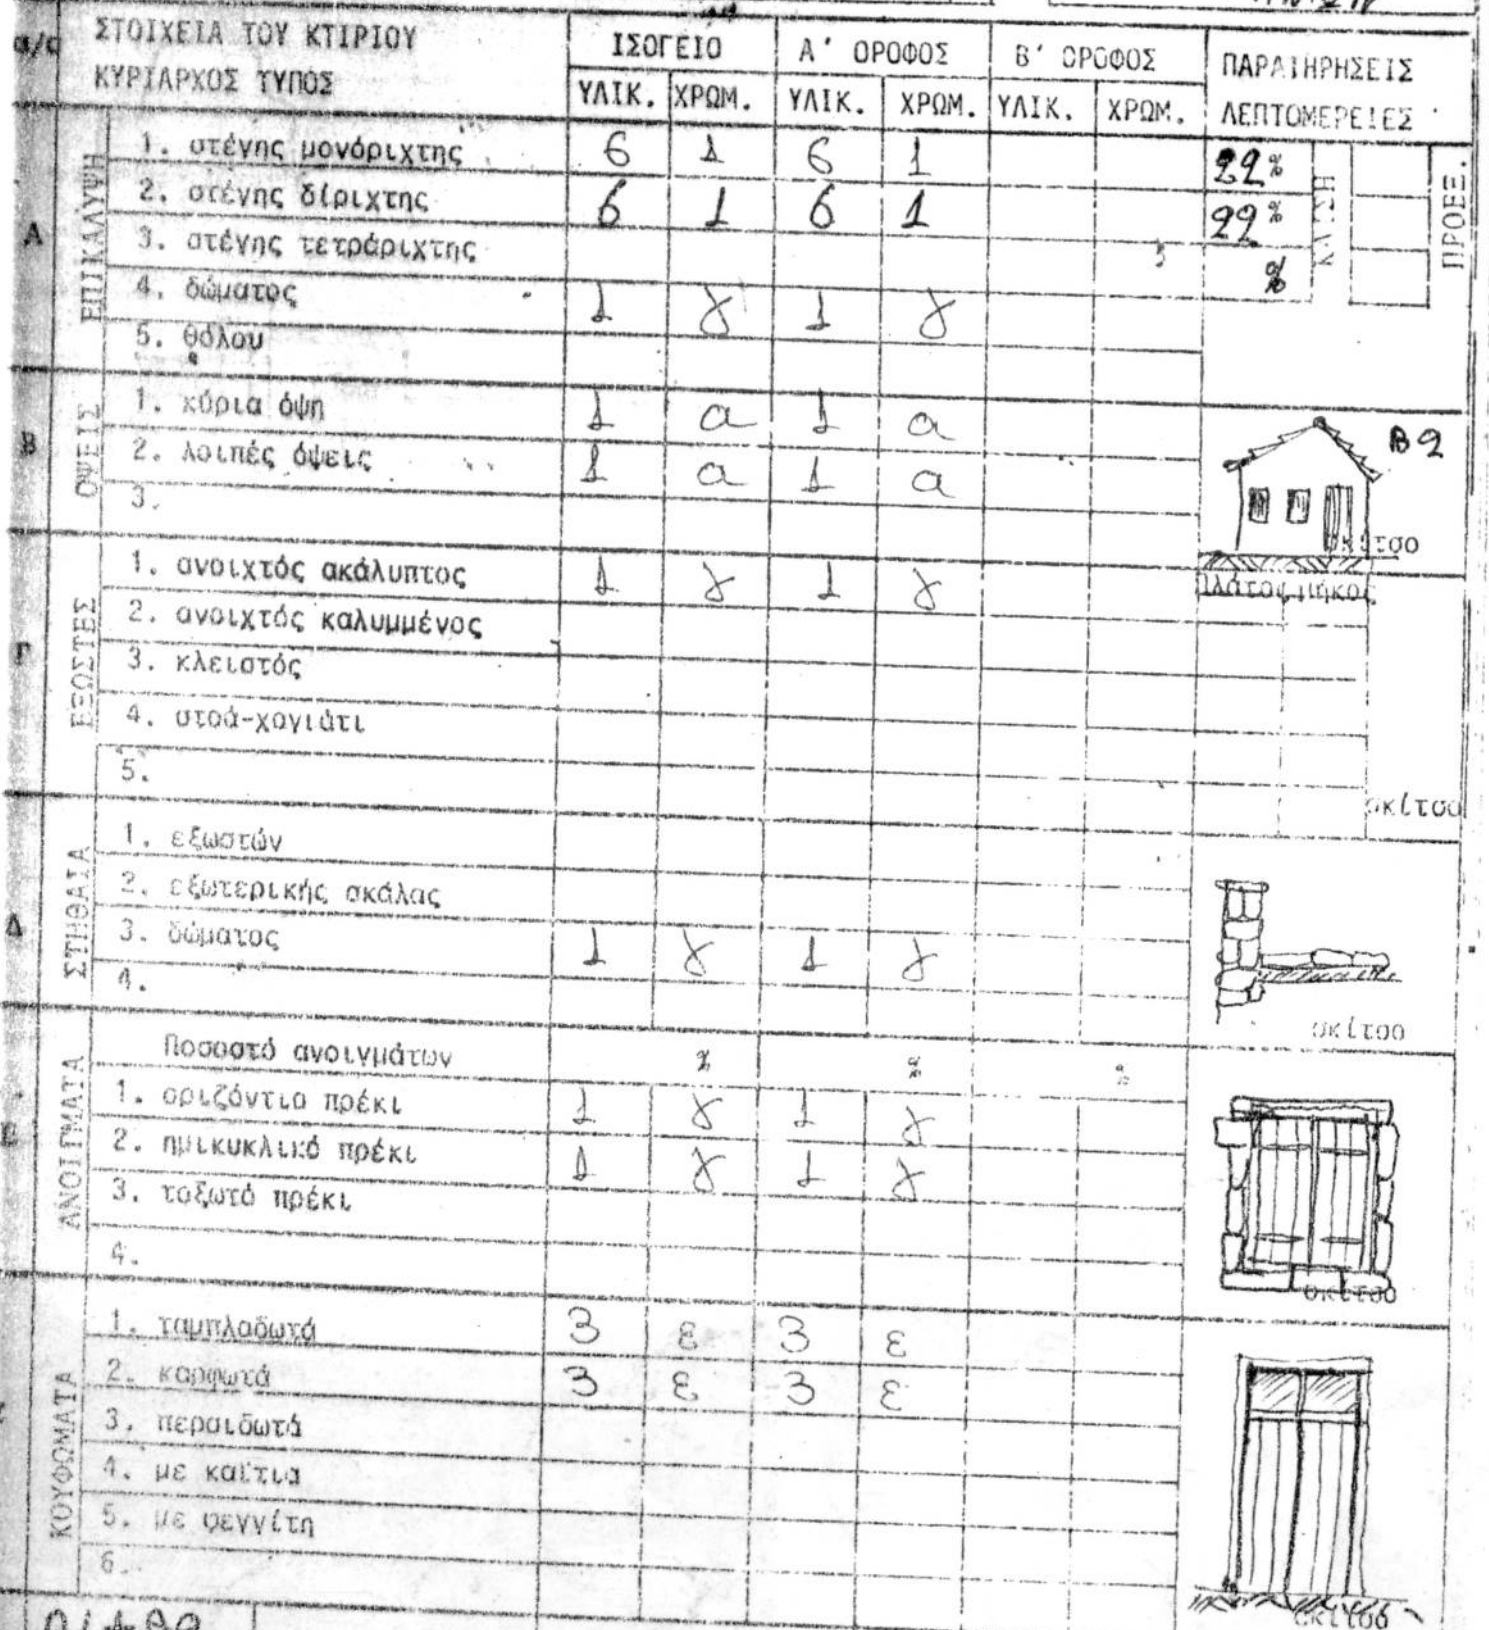 α/α ΣΤΟΙΧΕΙΑ ΤΟΥ ΚΤΙΡΙΟΥ ΙΣΟΓΕΙΟ Α' ΟΡΟΦΟΣ Β' ΟΡΟΦΟΣ ΠΑΡΑΤΗΡΗΣΕΙΣ
ΚΥΡΙΑΡΧΟΣ ΤΥΠΟΣ ΥΛΙΚ. ΧΡΩΜ. ΥΛΙΚ. ΧΡΩΜ. ΥΛΙΚ. ΧΡΩΜ. ΛΕΠΤΟΜΕΡΕΙΕΣ
Α ΕΠΙΚΑΛΥΨΗ
1. στέγης μονόριχτης 6 1 6 1 22% ΚΛΙΣΗ ΠΡΟΕΞ.
2. στέγης δίριχτης 6 1 6 1 22%
3. στέγης τετράριχτης %
4. δώματος 1 γ 1 γ
5. θόλου
Β ΟΨΕΙΣ
1. κύρια όψη 1 α 1 α
2. λοιπές όψεις 1 α 1 α Β2
3. σκίτσο
Γ ΕΞΩΣΤΕΣ
1. ανοιχτός ακάλυπτος 1 γ 1 γ πλάτος μήκος
2. ανοιχτός καλυμμένος
3. κλειστός
4. στοά-χαγιάτι
5. σκίτσο
Δ ΣΤΗΘΑΙΑ
1. εξωστών
2. εξωτερικής σκάλας
3. δώματος 1 γ 1 γ
4. σκίτσο
Ε ΑΝΟΙΓΜΑΤΑ
Ποσοστό ανοιγμάτων % % %
1. οριζόντιο πρέκι 1 γ 1 γ
2. ημικυκλικό πρέκι 1 γ 1 γ
3. τοξωτό πρέκι
4. σκίτσο
ΚΟΥΦΩΜΑΤΑ
1. ταμπλαδωτά 3 ε 3 ε
2. καρφωτά 3 ε 3 ε
3. περσιδωτά
4. με καΐτια
5. με φεγγίτη
6. σκίτσο